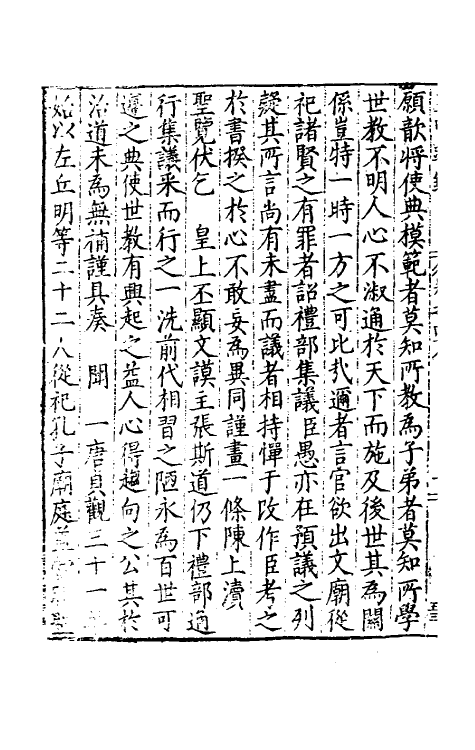 願歆將使典模範者莫知所教為子弟者莫知所學
世教不明人心不淑通於天下而施及後世其為關
係豈特一時一方之可比㢤邇者言官欲出文廟從
祀諸賢之有罪者詔禮部集議臣愚亦在預議之列
疑其所言尚有未盡而議者相持憚于改作臣考之
於書揆之於心不敢妄為異同謹畫一條陳上瀆
聖覽伏乞 皇上丕顯文謨主張斯道仍下禮部通
行集議采而行之一洗前代相習之陋永為百世可
遵之典使世教有興起之益人心得趨向之公其於
治道未為無補謹具奏 聞 一唐貞觀二十一
始以左丘明等二十二人從祀孔子廟庭